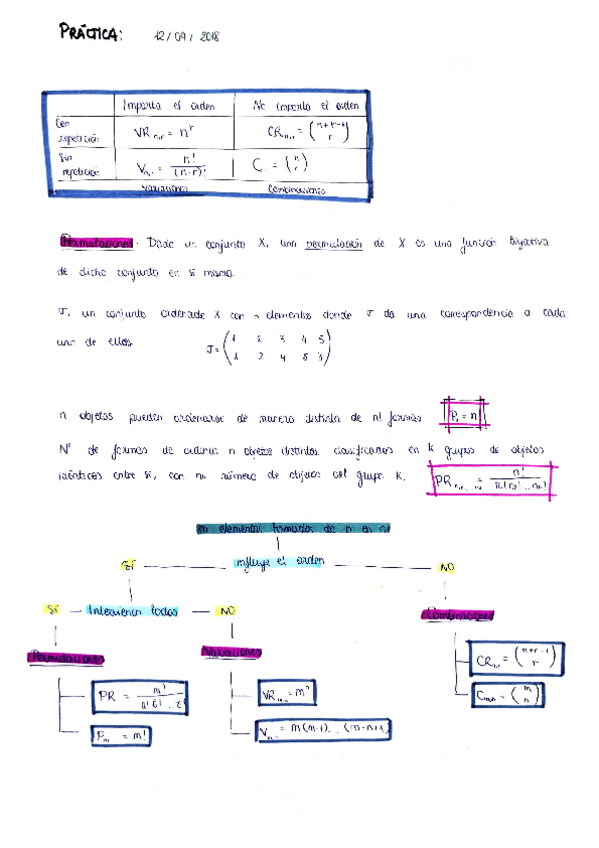 PRÁCTICA: 12/09/2018
Importa el orden No importa el orden
Con repetición VR n,r = n^r CR n,r = (n+r-1 r)
Sin repetición V n,r = n!/(n-r)! C = (n r)
Variaciones Combinaciones
Permutaciones. Dado un conjunto X, una permutación de X es una función biyectiva
de dicho conjunto en sí mismo.
σ, un conjunto ordenado X con n elementos donde σ da una correspondencia a cada
uno de ellos
σ = (1 2 3 4 5
1 2 4 5 3)
n objetos pueden ordenarse de manera distinta de n! formas
Nº de formas de ordenar n objetos distintos clasificados en k grupos de objetos
idénticos entre sí, con nk número de objetos del grupo k.
PR = n!/n1! n2! ... nk!
m elementos tomados de n en n
influye el orden
SÍ NO
SÍ Intervienen todos NO
Permutaciones Variaciones Combinaciones
PR = m!/a! b! ... VR m,n = m^n CR = (n+r-1 r)
P m = m! V = m(m-1)...(m-n+1) C m,n = (m n)